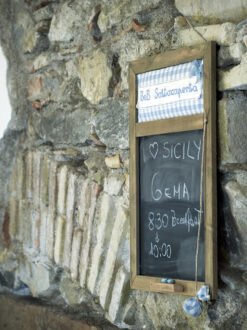 B&B Sottocoperta
I ♡ SICILY
GEMA
8:30 Breakfast
&
10:00